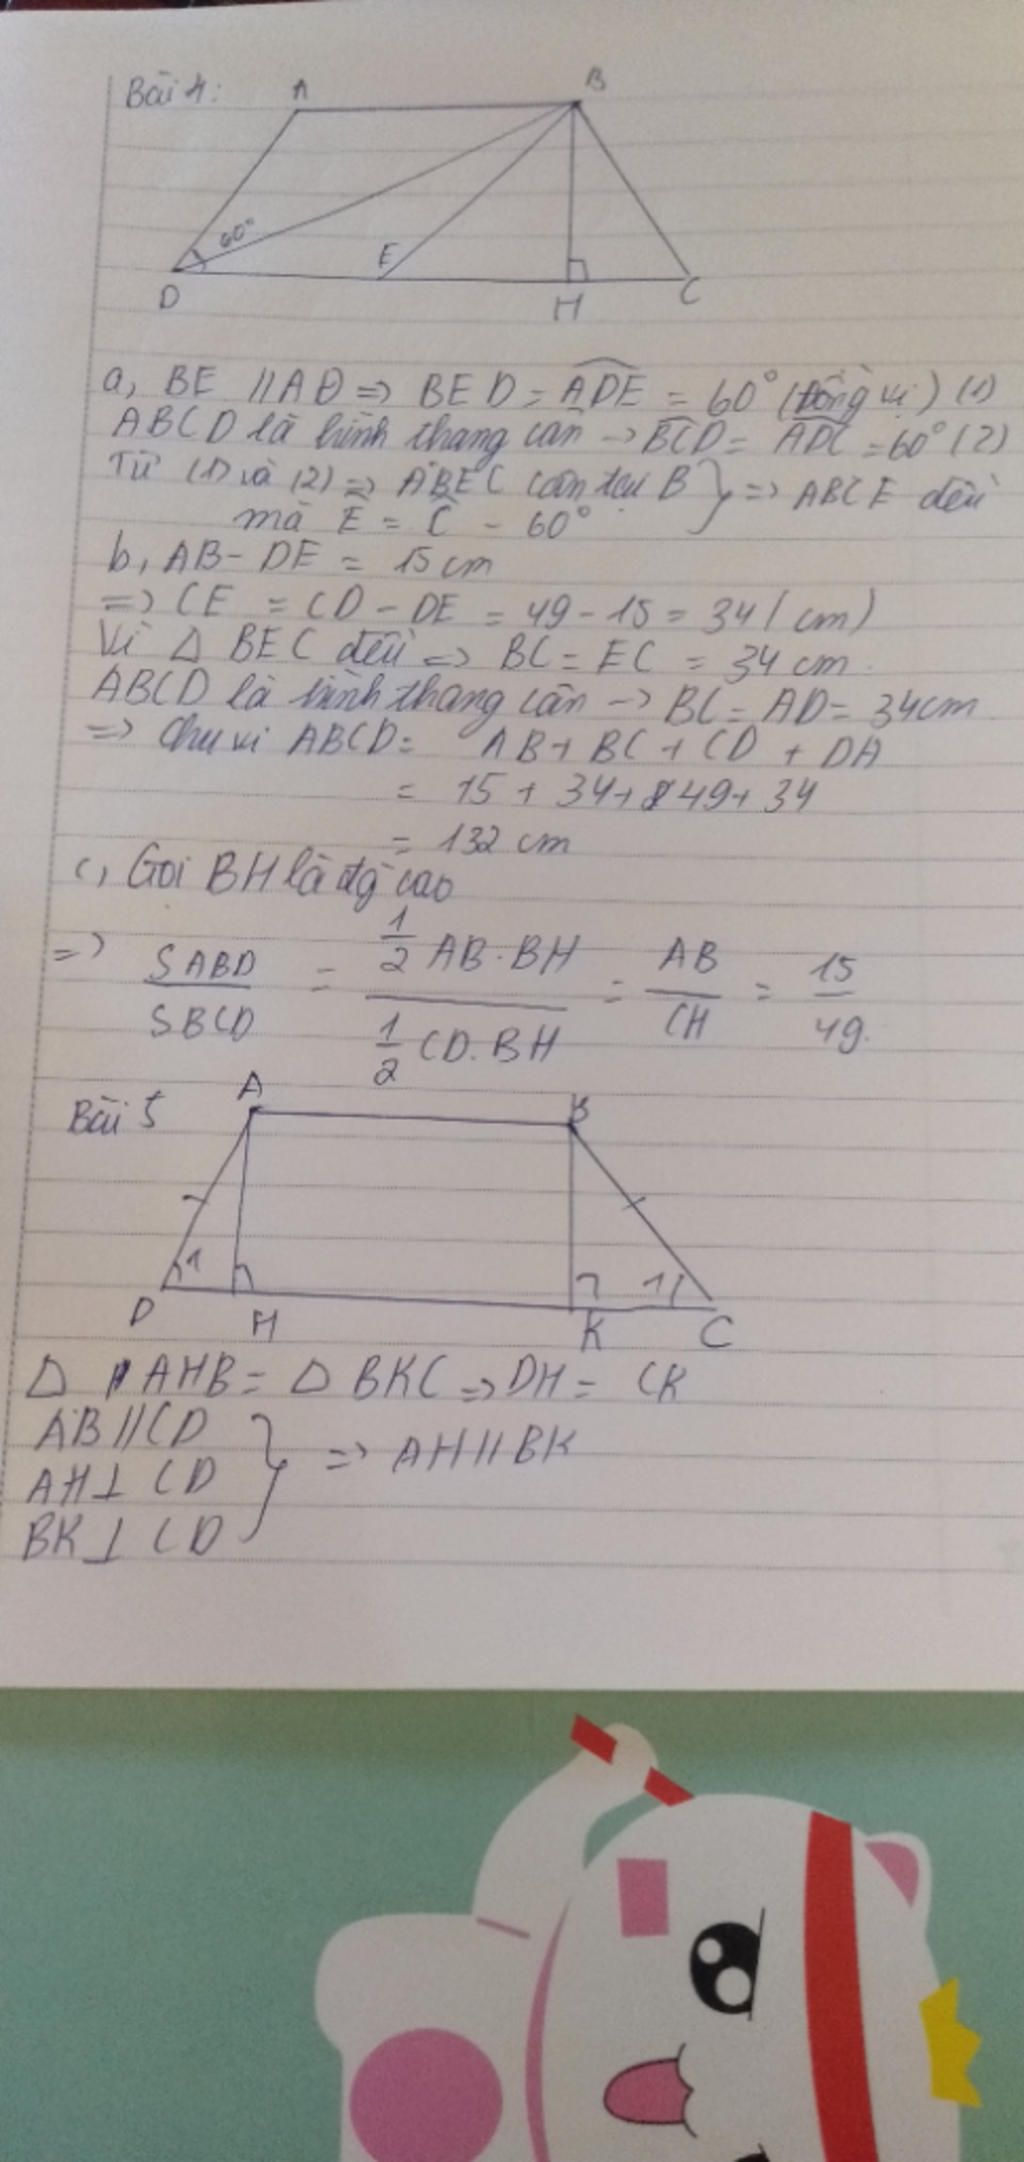 Bài 4:
A
B
60°
E
D
H
C
a, BE // AD => BED = ADE = 60° (Đồng vị) (1)
ABCD là hình thang cân -> BCD = ADC = 60° (2)
Từ (1) và (2) => ΔBEC cân tại B } => ΔBCE đều
mà E = C = 60°
b, AB = DE = 15 cm
=> CE = CD - DE = 49 - 15 = 34 (cm)
Vì Δ BEC đều => BC = EC = 34 cm.
ABCD là hình thang cân -> BC = AD = 34cm
=> Chu vi ABCD = AB + BC + CD + DA
= 15 + 34 + 49 + 34
= 132 cm
c, Gọi BH là đg cao
=> SABD / SBCD = 1/2 AB . BH / 1/2 CD . BH = AB / CH = 15 / 49.
Bài 5
A
B
1
1
D
H
K
C
Δ AHB = Δ BKC => DH = CK
AB // CD
AH ⊥ CD } => AH // BK
BK ⊥ CD